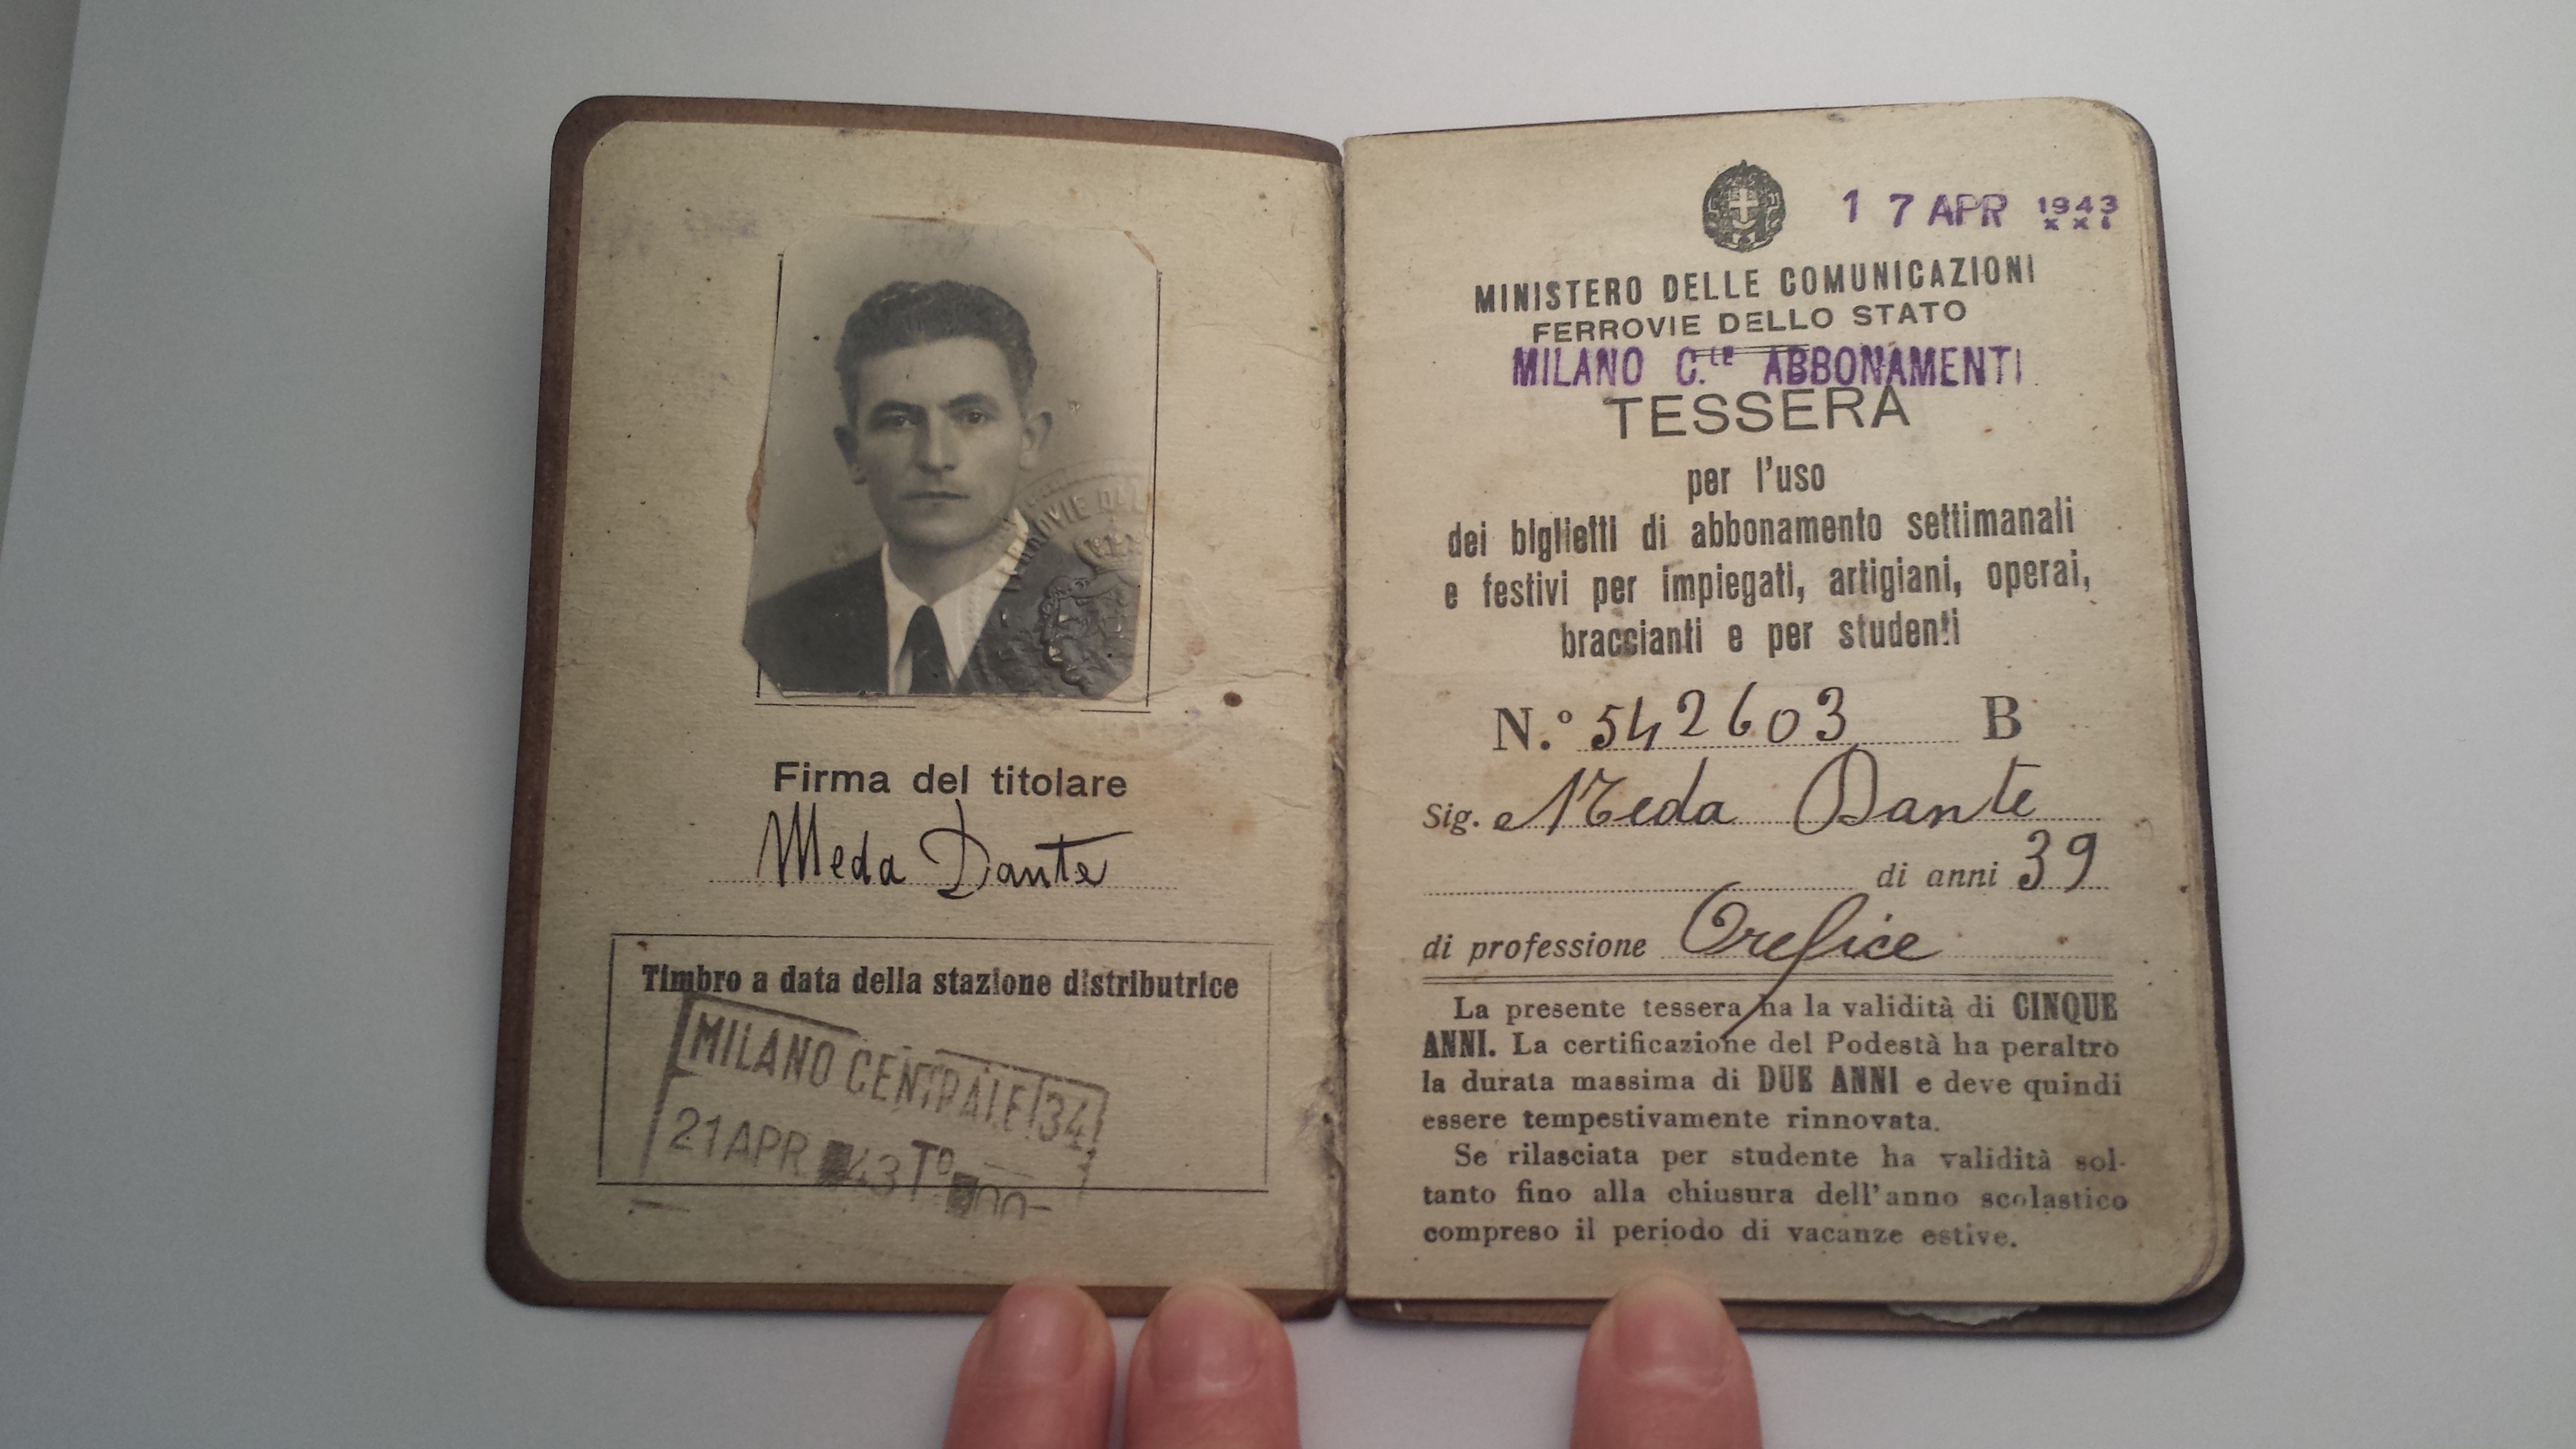 FERROVIE DEL
Firma del titolare
Meda Dante
Timbro a data della stazione distributrice
MILANO CENTRALE 34
21 APR 43 T°
17 APR 1943
XXI
MINISTERO DELLE COMUNICAZIONI
FERROVIE DELLO STATO
MILANO C.LE ABBONAMENTI
TESSERA
per l'uso
dei biglietti di abbonamento settimanali
e festivi per impiegati, artigiani, operai,
braccianti e per studenti
N.° 542603 B
Sig. Meda Dante
di anni 39
di professione Orefice
La presente tessera ha la validità di CINQUE
ANNI. La certificazione del Podestà ha peraltro
la durata massima di DUE ANNI e deve quindi
essere tempestivamente rinnovata.
Se rilasciata per studente ha validità sol-
tanto fino alla chiusura dell'anno scolastico
compreso il periodo di vacanze estive.